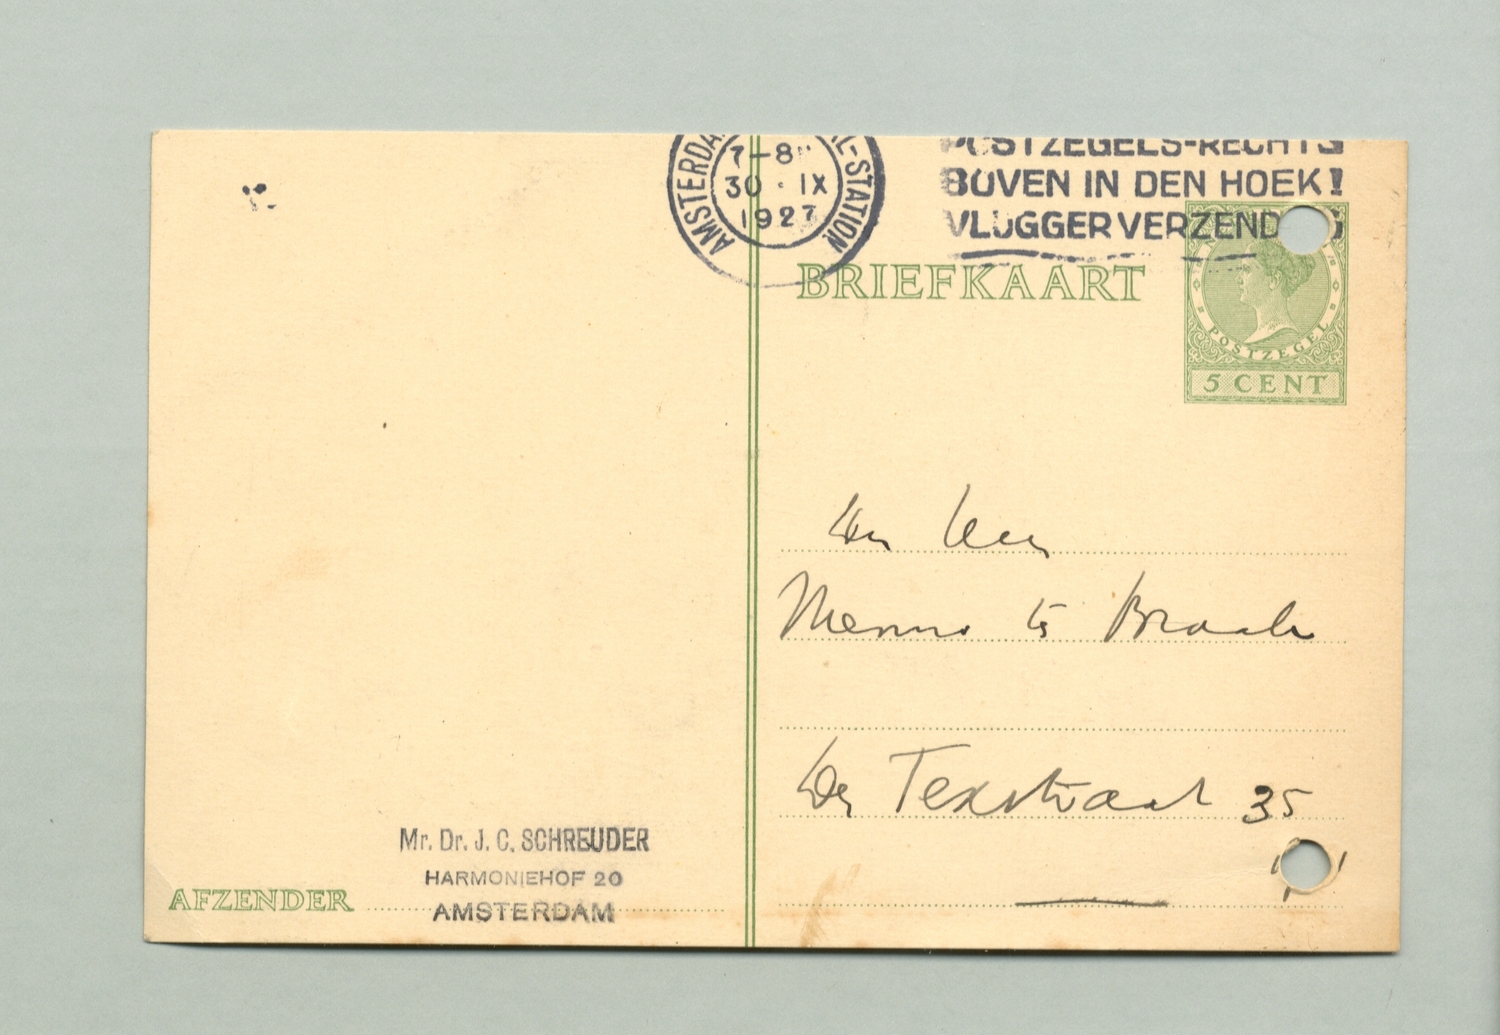 AMSTERDA L-STATION
7-8
30 · IX
1927
POSTZEGELS-RECHTS
BOVEN IN DEN HOEK!
VLUGGER VERZEND G
BRIEFKAART
POSTZEGEL
5 CENT
Den Heer
Menno ter Braak
Den Texstraat 35
Mr. Dr. J. C. SCHREUDER
HARMONIEHOF 20
AMSTERDAM
AFZENDER